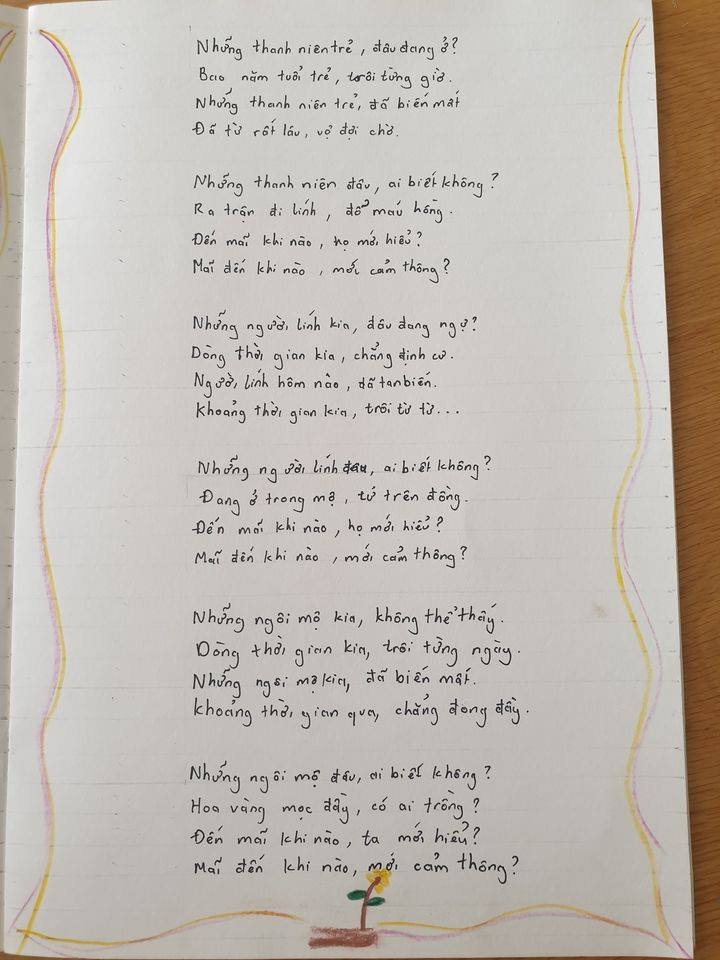 Những thanh niên trẻ, đâu đang ở?
Bao năm tuổi trẻ, trôi từng giờ.
Những thanh niên trẻ, đã biến mất
Đã từ rất lâu, vợ đợi chờ.
Những thanh niên đâu, ai biết không?
Ra trận đi lính, đổ máu hồng.
Đến mãi khi nào, họ mới hiểu?
Mãi đến khi nào, mới cảm thông?
Những người lính kia, đâu đang ngự?
Dòng thời gian kia, chẳng định cư.
Người lính hôm nào, đã tan biến.
Khoảng thời gian kia, trôi từ từ...
Những người lính đâu, ai biết không?
Đang ở trong mộ, tứ trên đồng.
Đến mãi khi nào, họ mới hiểu?
Mãi đến khi nào, mới cảm thông?
Những ngôi mộ kia, không thể thấy.
Dòng thời gian kia, trôi từng ngày.
Những ngôi mộ kia, đã biến mất.
Khoảng thời gian qua, chẳng đong đầy.
Những ngôi mộ đâu, ai biết không?
Hoa vàng mọc đầy, có ai trồng?
Đến mãi khi nào, ta mới hiểu?
Mãi đến khi nào, mới cảm thông?